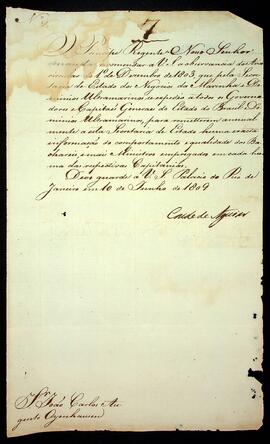 7
O Principe Regente Nosso Senhor
manda recommendar a V. S. a observancia do Avizo
Circular de 1º de Dezembro de 1803, que pela Secre
taria de Estado dos Negocios da Marinha e Do
minios Ultramarinos, se expedio a todos os Governa
dores e Capitães Generaes do Estado do Brasil e Do
minios Ultramarinos, para remetterem annual
mente a esta Secretaria de Estado huma exacta
informação do comportamento e qualidades dos Ba
chareis, e mais Ministros empregados em cada hu
ma das respectivas Capitanias.
Deos guarde a V. S. Palacio do Rio de
Janeiro em 10 de Junho de 1809
Conde de Aguiar
Sr. João Carlos Au
gusto Oyenhausen